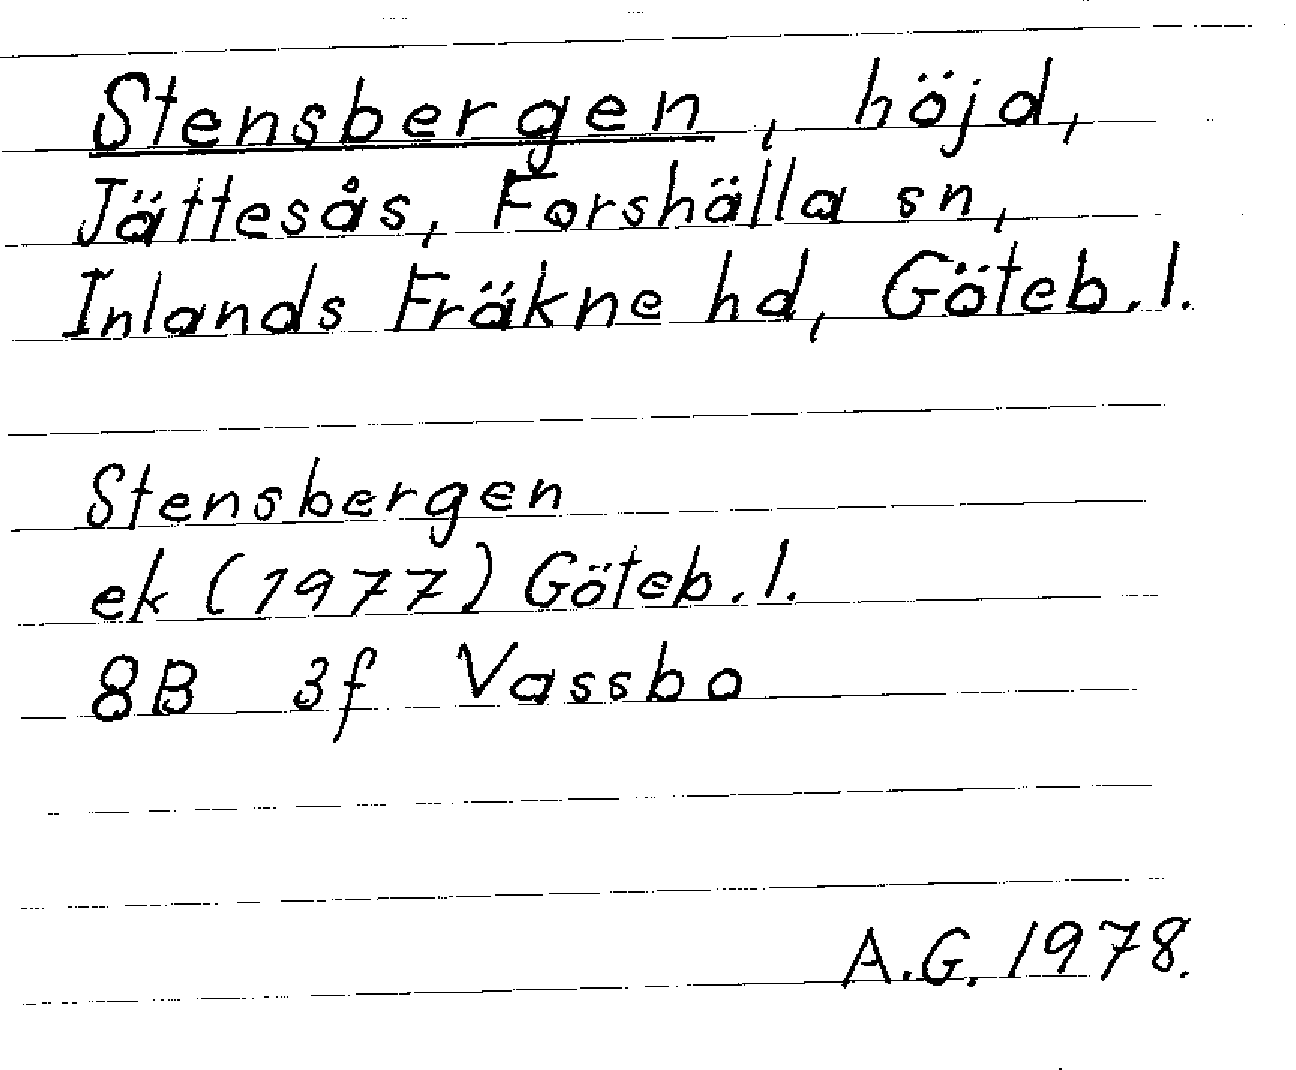 Stensbergen, höjd,
Jättesås, Forshälla sn,
Inlands Fräkne hd, Göteb.l.
Stensbergen
ek (1977) Göteb.l.
8B 3f Vassbo
A.G. 1978.